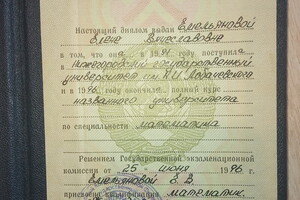 Настоящий диплом выдан Емельяновой
Елене Вячеславовне
в том, что он а в 1991 году поступил а
в Нижегородский государственный
университет им. Н.И. Лобачевского
и в 1996 году окончил а полный курс
названного университета
по специальности математика
Решением Государственной экзаменационной
комиссии от 25 июня 1996 г.
Емельяновой Е. В.
присвоена квалификация математик.